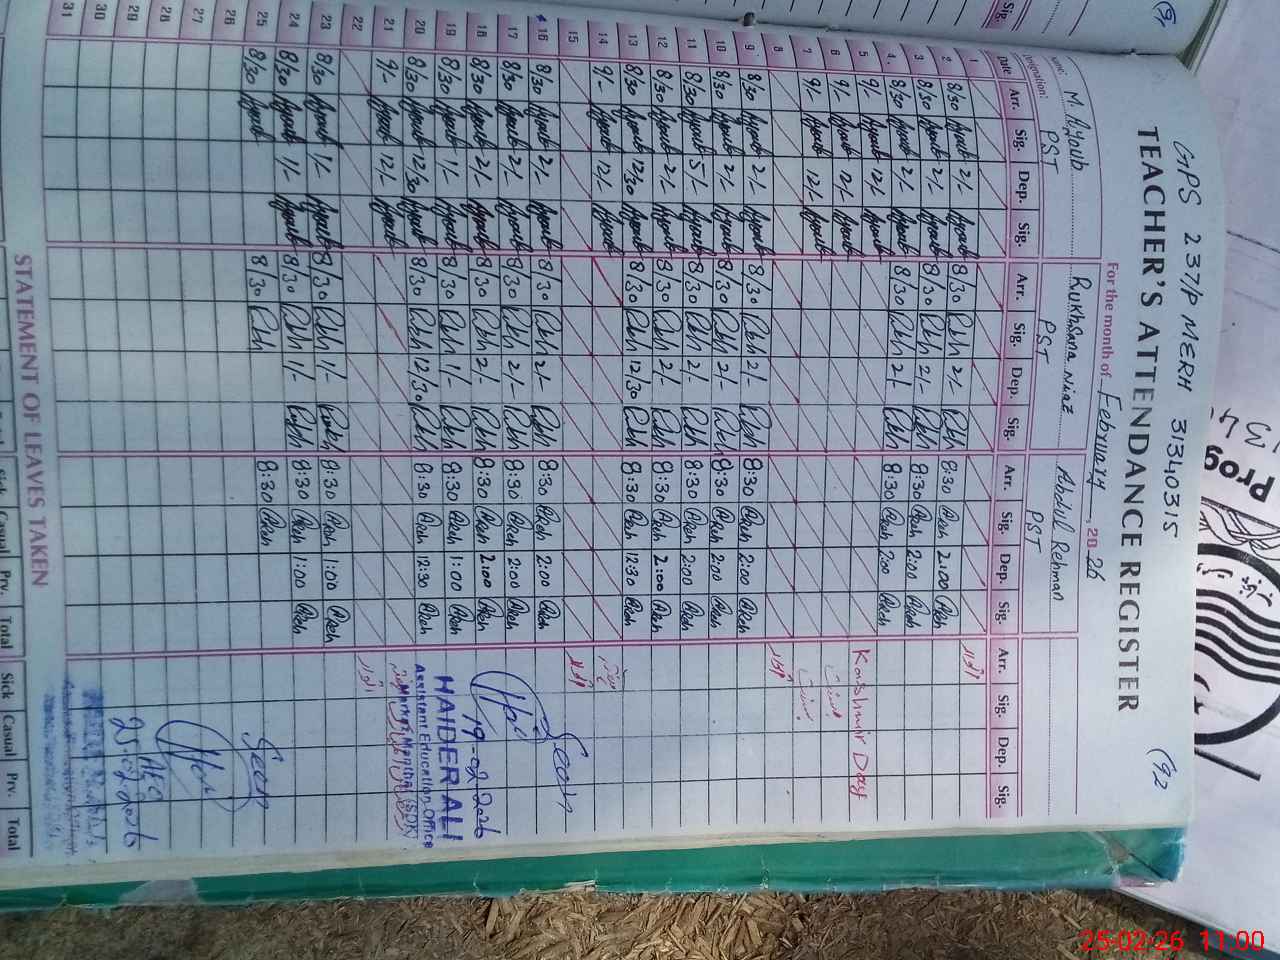 GPS 237/P MERH 31340315 (92
TEACHER'S ATTENDANCE REGISTER
For the month of February, 2026
Name: M. Ayoub Rukhsana Niaz Abdul Rehman
Designation: PST PST PST
Date Arr. Sig. Dep. Sig. Arr. Sig. Dep. Sig. Arr. Sig. Dep. Sig. Arr. Sig. Dep. Sig.
1 اتوار
2 8/30 Ayoub 2/- Ayoub 8/30 Rkh 2/- Rkh 8:30 AReh 2:00 AReh
3 8/30 Ayoub 2/- Ayoub 8/30 Rkh 2/- Rkh 8:30 AReh 2:00 AReh
4 8/30 Ayoub 2/- Ayoub 8/30 Rkh 2/- Rkh 8:30 AReh 2:00 AReh
5 9/- Ayoub 12/- Ayoub Kashmir Day
6 9/- Ayoub 12/- Ayoub
7 9/- Ayoub 12/- Ayoub
8 اتوار
9 8/30 Ayoub 2/- Ayoub 8/30 Rkh 2/- Rkh 8:30 AReh 2:00 AReh
10 8/30 Ayoub 2/- Ayoub 8/30 Rkh 2/- Rkh 8:30 AReh 2:00 AReh
11 8/30 Ayoub 5/- Ayoub 8/30 Rkh 2/- Rkh 8:30 AReh 2:00 AReh
12 8/30 Ayoub 2/- Ayoub 8/30 Rkh 2/- Rkh 8:30 AReh 2:00 AReh
13 8/30 Ayoub 12/30 Ayoub 8/30 Rkh 12/30 Rkh 8:30 AReh 12:30 AReh
14 9/- Ayoub 12/- Ayoub
15 اتوار
16 8/30 Ayoub 2/- Ayoub 8/30 Rkh 2/- Rkh 8:30 AReh 2:00 AReh Seen
17 8/30 Ayoub 2/- Ayoub 8/30 Rkh 2/- Rkh 8:30 AReh 2:00 AReh
18 8/30 Ayoub 2/- Ayoub 8/30 Rkh 2/- Rkh 8:30 AReh 2:00 AReh 19-02-2026
19 8/30 Ayoub 1/- Ayoub 8/30 Rkh 1/- Rkh 8:30 AReh 1:00 AReh HAIDER ALI
20 8/30 Ayoub 12/30 Ayoub 8/30 Rkh 12/30 Rkh 8:30 AReh 12:30 AReh Assistant Education Officer
21 9/- Ayoub 12/- Ayoub
22 اتوار
23 8/30 Ayoub 1/- Ayoub 8/30 Rkh 1/- Rukh 8:30 AReh 1:00 AReh
24 8/30 Ayoub 1/- Ayoub 8/30 Rkh 1/- Rukh 8:30 AReh 1:00 AReh
25 8/30 Ayoub 8/30 Rkh 8:30 AReh Seen
26
27
28
29 AEO
30 25-02-2026
31
STATEMENT OF LEAVES TAKEN
Sick Casual Prv. Total Sick Casual Prv. Total
Prog
25-02-26 11:00